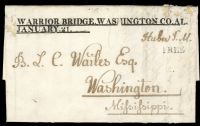 WARRIOR BRIDGE, WASHINGTON CO. AL.
JANUARY 21.
P.M.
FREE
B. L. C. Wailes Esq.
Washington.
Mississippi.